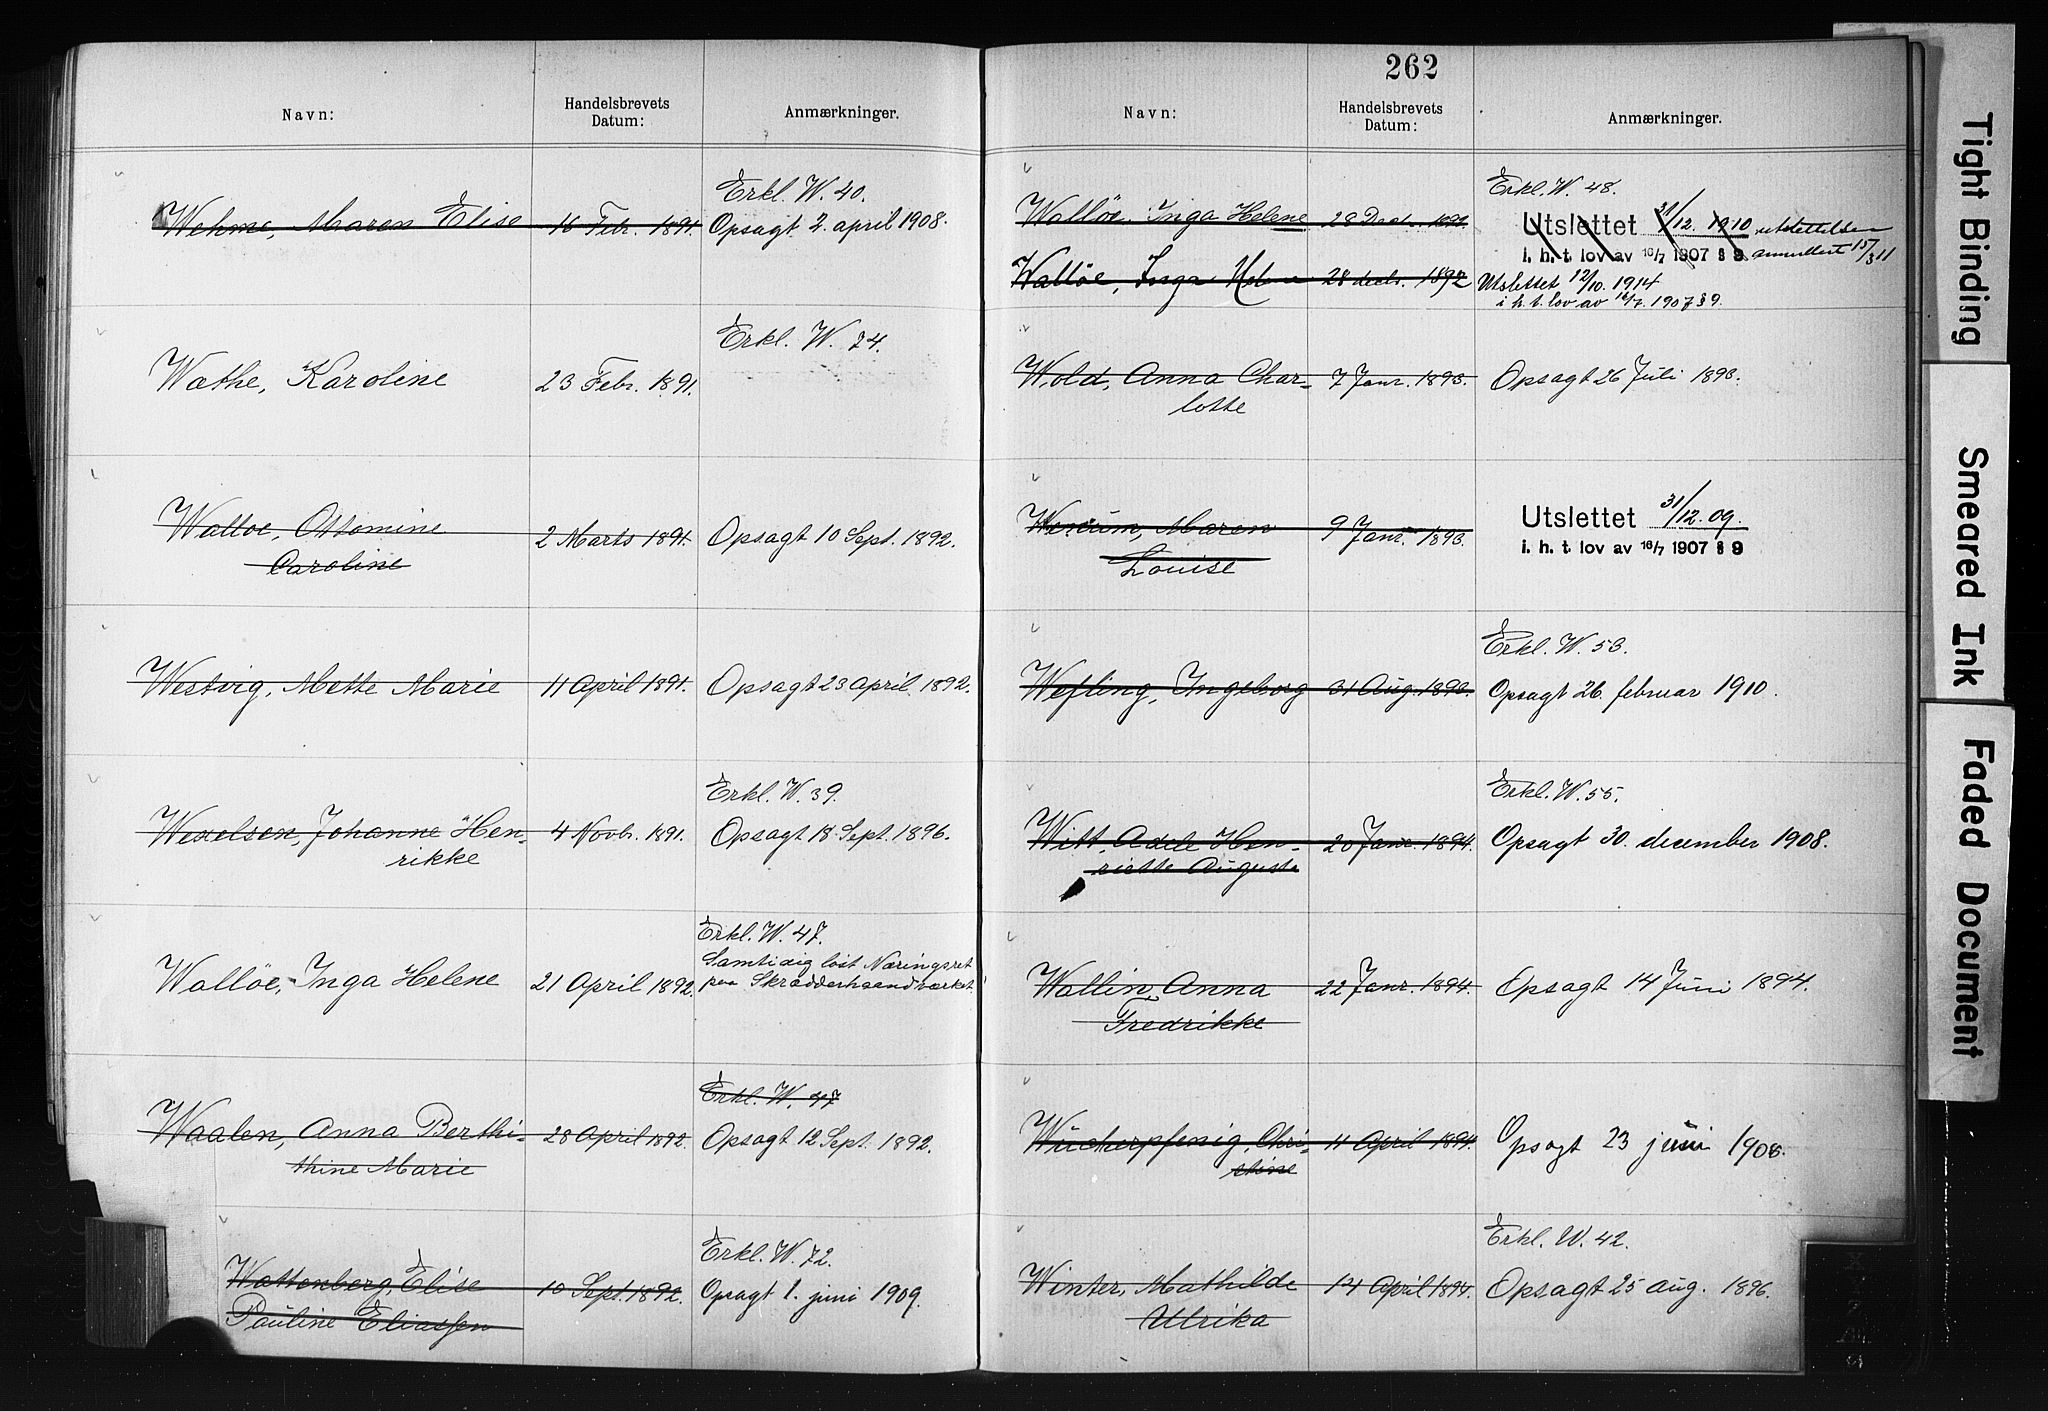 Navn:
Handelsbrevets
Datum:
Anmærkninger.
Erkl. W. 40.
Wehme, Maren Elise 16 Febr. 1891. Opsagt 2. april 1908.
Erkl. W. 24.
Wæthe, Karoline 23 Febr. 1891.
Walloe, Ottomine 2 Marts 1891. Opsagt 10 Sept. 1892.
Caroline
Westvig, Mette Marie 11 April 1891. Opsagt 23 April 1892.
Erkl. W. 39.
Wexelsen, Johanne Hen- 4 Novbr. 1891. Opsagt 18 Sept. 1896.
rikke
Erkl. W. 47.
Samtidig løst Næringsret
Walløe, Inga Helene 21 April 1892. paa Skrædderhaandværket.
Erkl. W. 47
Waalen, Anna Berthi- 28 April 1892. Opsagt 12 Sept. 1892.
thine Marie
Erkl. W. 72.
Wattenberg, Elise 10 Sept. 1892. Opsagt 1. juni 1909.
Pauline Eliassen
262
Navn:
Handelsbrevets
Datum:
Anmærkninger.
Erkl. W. 48.
Walløe, Inga Helene 28 Decbr. 1892. Utslettet 31/12. 1910 utslettelsen
i. h. t. lov av 16/7 1907 § 9 annullert 15/3 11
Walløe, Inga Helene 28 decbr. 1892 Utslettet 12/10. 1914
i h. t. lov av 16/7. 1907 § 9.
Wold, Anna Char- 7 Janr. 1893. Opsagt 26 Juli 1893.
lotte
Maren 9 Janr. 1893. Utslettet 31/12. 09.
Louise i. h. t. lov av 16/7 1907 § 9
Erkl. W. 53.
Wefling, Ingeborg 31 Aug. 1893. Opsagt 26. februar 1910.
Erkl. W. 55.
Witt Adele Hen- 20 Janr. 1894. Opsagt 30. december 1908.
riette Auguste
Wallin, Anna 22 Janr. 1894. Opsagt 14 Juni 1894.
Fredrikke
Wückerpfenig, Chri- 11 April 1894. Opsagt 23 juni 1908.
stine
Erkl. W. 42.
Winter, Mathilde 14 April 1894. Opsagt 25 aug. 1896.
Ulrika
Tight Binding
Smeared Ink
Faded Document